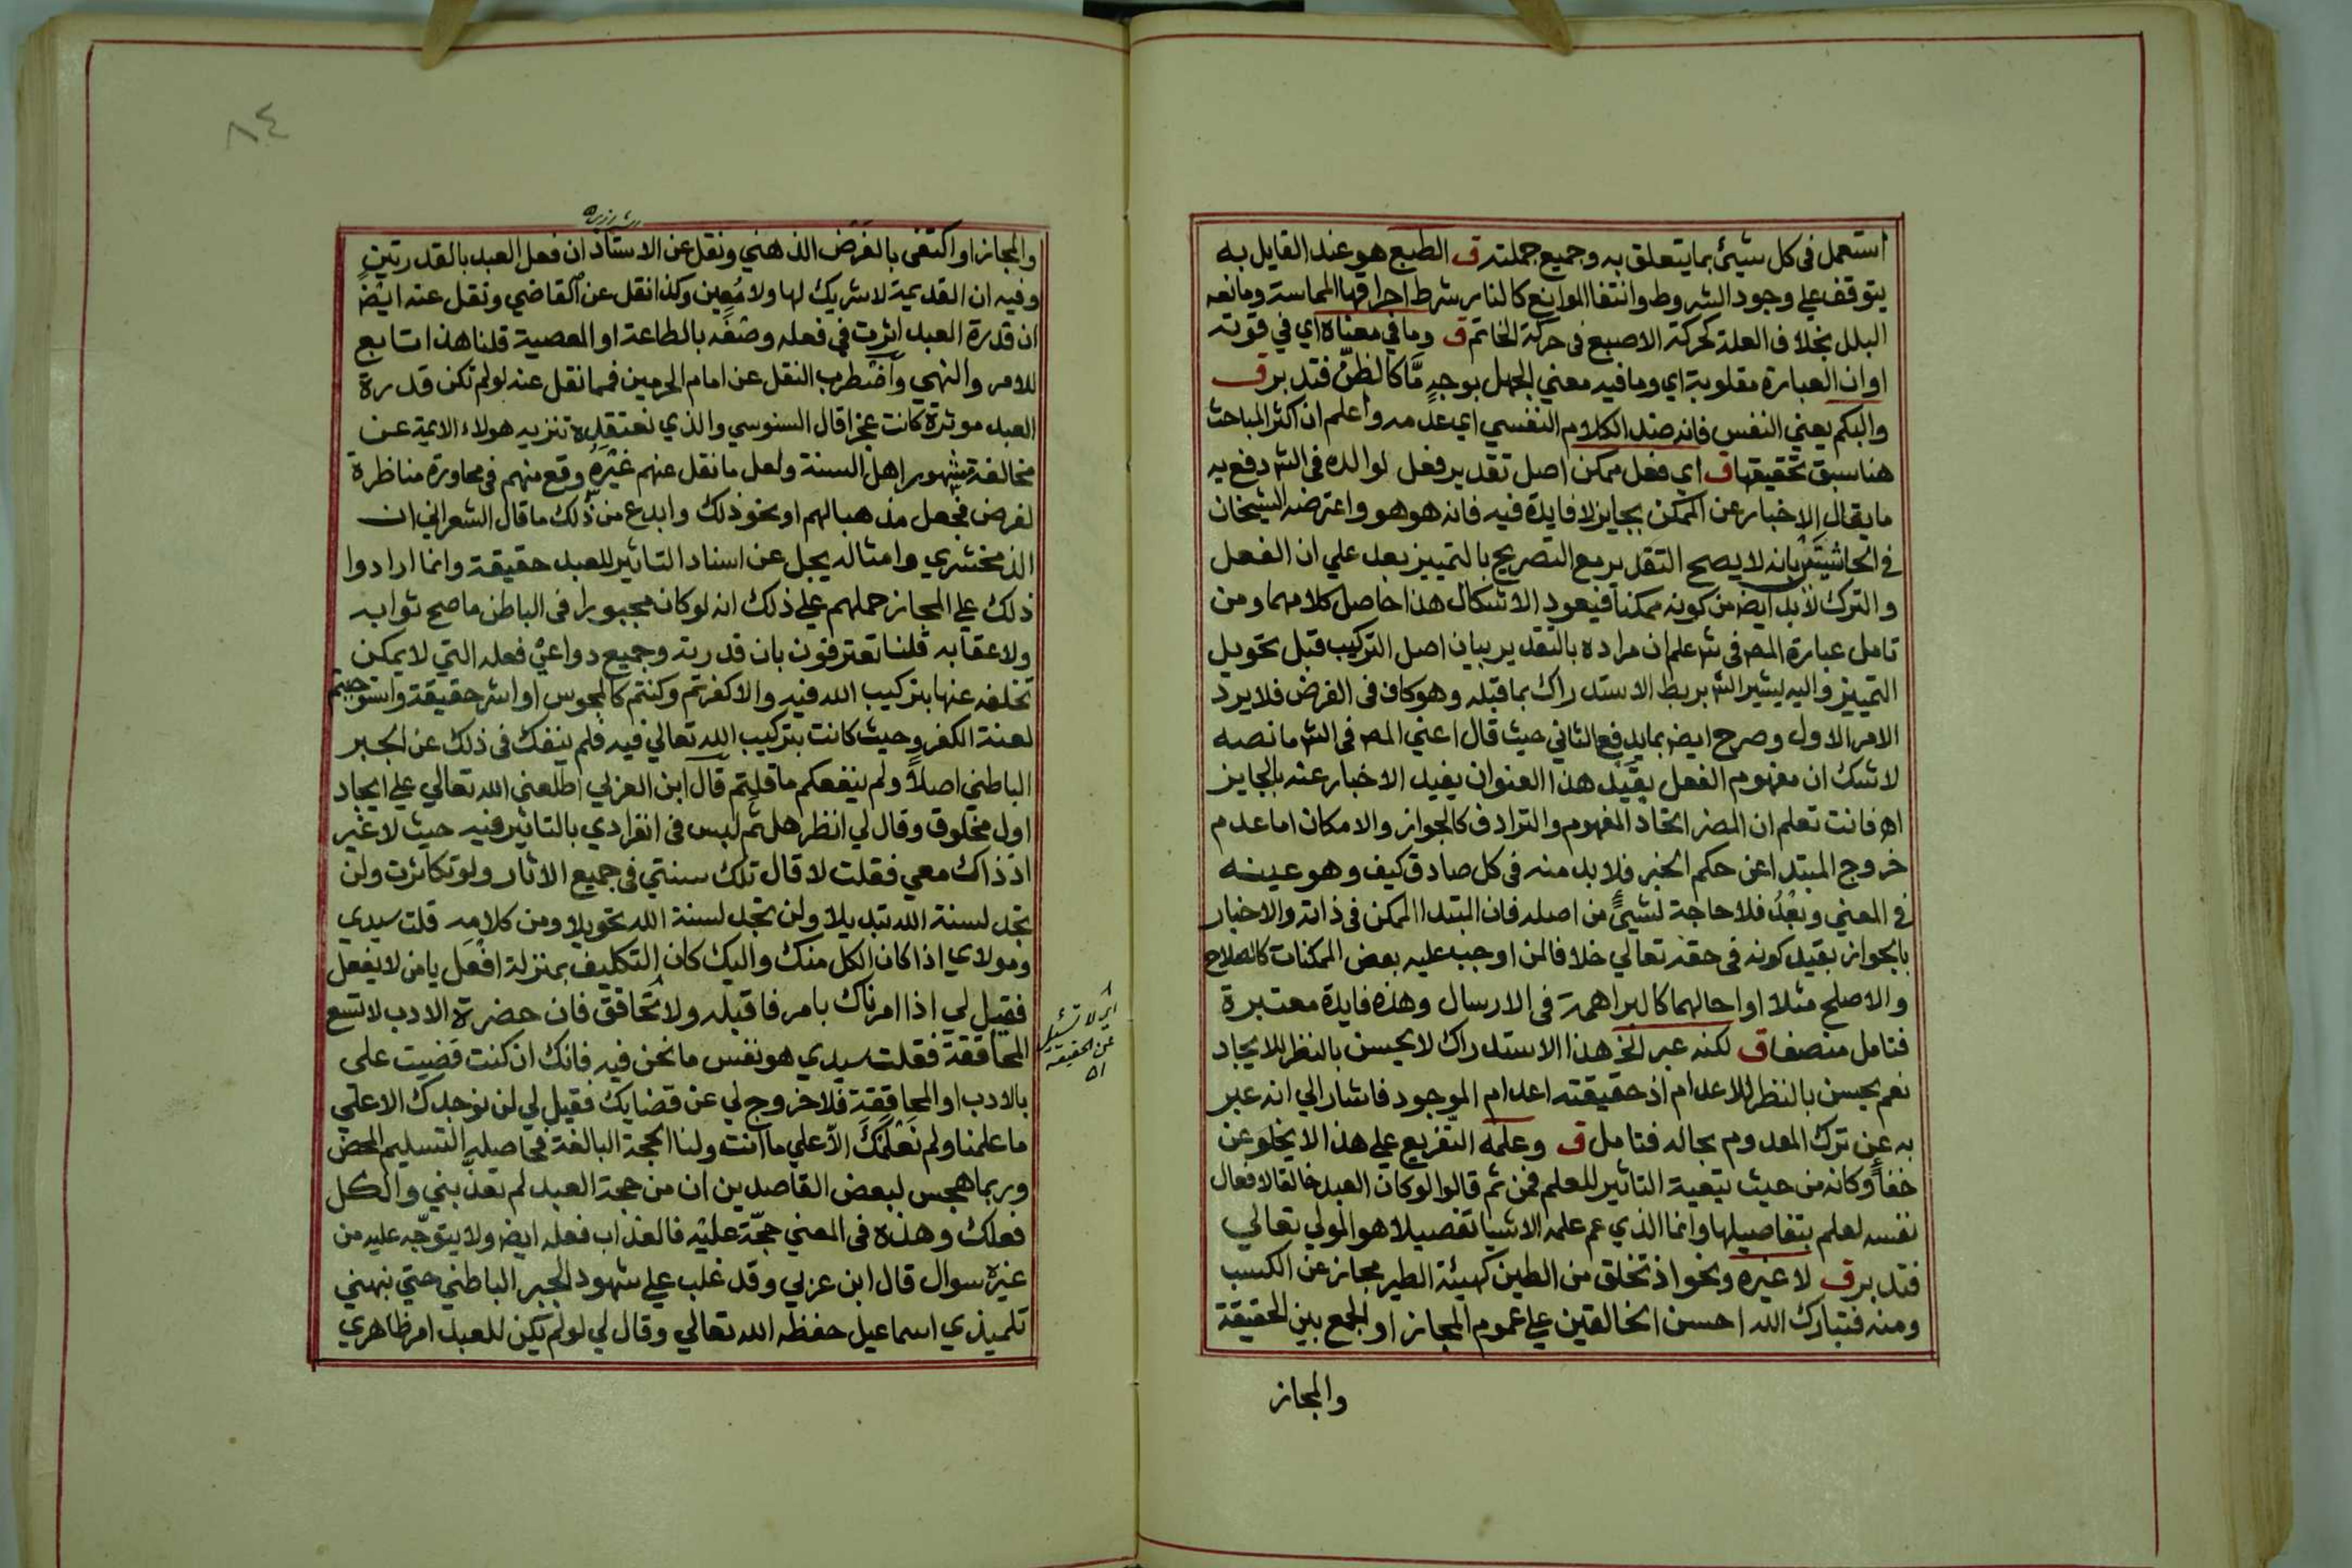 استعمل في كل شيئ بما يتعلق به وجميع جملته ق الطبع هو عند القايل به
يتوقف علي وجود الشروط وانتفا الموانع كالنار شرط احراقها المماسة ومانعه
البلل بخلاف العلة كحركة الاصبع في حركة الخاتم ق وما في معناه اي في قوته
او ان العبارة مقلوبة اي وما فيه معني الجهل بوجهٍ مَّا كالظنّ فتدبر ق
والبكم يعني النفس فانه ضد الكلام النفسي اي عدمه واعلم ان اكثر المباحث
هنا سبق تحقيقها ق اي فعل ممكن اصل تقدير فعل لوالده في الشر دفع به
ما يقال الاخبار عن الممكن بجايز لا فايدة فيه فانه هو هو واعترضه الشيخان
في الحاشيتين بانه لا يصح التقدير مع التصريح بالتمييز بعد علي ان الفعل
والترك لابد ايض من كونه ممكنا فيعود الاشكال هذا حاصل كلامهما ومن
تامل عبارة المص في شر علم ان مراده بالتقدير بيان اصل التركيب قبل تحويل
التمييز واليه يشير الشر بربط الاستدراك بما قبله وهو كاف في الغرض فلا يرد
الامر الاول وصرح ايض بما يدفع الثاني حيث قال اعني المص في الشر ما نصه
لاشك ان مفهوم الفعل بقيد هذا العنوان يفيد الاخبار عنه بالجايز
اه فانت تعلم ان المضر اتحاد المفهوم والترادف كالجواز والامكان اما عدم
خروج المبتدا عن حكم الخبر فلا بد منه في كل صادق كيف وهو عينه
في المعني وبَعْدُ فلا حاجة لشيئ من اصله فان المبتدا الممكن في ذاته والاخبار
بالجواز بقيد كونه في حقه تعالي خلافا لمن اوجب عليه بعض الممكنات كالصلاح
والاصلح مثلا او احالهما كالبراهمة في الارسال وهذه فايدة معتبرة
فتامل منصفا ق لكنه عبر الخ هذا الاستدراك لا يحسن بالنظر للايجاد
نعم يحسن بالنظر للاعدام اذ حقيقته اعدام الموجود فاشار الي انه عبر
به عن ترك المعدوم بحاله فتامل ق وعلمه التفريع علي هذا لا يخلو عن
خفأ وكانه من حيث تبعية التاثير للعلم فمن ثم قالوا لو كان العبد خالقا لافعال
نفسه لعلم بتفاصيلها وانما الذي عم علمه الاشيا تفصيلا هو المولي تعالي
فتدبر ق لا غيره ونحو اذ تخلق من الطين كهيئة الطير مجاز عن الكسب
ومنه فتبارك الله احسن الخالقين علي عموم المجاز او الجمع بين الحقيقة
والمجاز
٨٤
والمجاز او اكتفي بالفرض الذهني ونقل عن الاستاذ ان فعل العبد بالقدرتين
وفيه ان القديمة لا شريك لها ولا مُعِين وكذا نقل عن القاضي ونقل عنه ايض
ان قدرة العبد اثرت في فعله وصفَه بالطاعة او المعصية قلنا هذا تابع
للامر والنهي واضطرب النقل عن امام الحرمين فمما نقل عنه لو لم تكن قدرة
العبد موثرة كانت عجزا قال السنوسي والذي نعتقده تنزيه هولاء الايمة عن
مخالفة مشهور اهل السنة ولعل ما نقل عنهم غيره وقع منهم في محاورة مناظرة
لغرض فجعل مذهبا لهم او نحو ذلك وابدع من ذلك ما قال الشعراني ان
الزمخشري وامثاله يجل عن اسناد التاثير للعبد حقيقة وانما ارادوا
ذلك علي المجاز حملهم علي ذلك انه لو كان مجبورا في الباطن ما صح ثوابه
ولا عقابه قلنا تعترفون بان قدرته وجميع دواعي فعله التي لا يمكن
تخلفه عنها بتركيب الله فيه والا كفرتم وكنتم كالمجوس او اشر حقيقة واستوجبتم
لعنة الكفر وحيث كانت بتركيب الله تعالي فيه فلم ينفك في ذلك عن الجبر
الباطني اصلاً ولم ينفعكم ما قلتم قال ابن العزلي اطلعني الله تعالي علي ايجاد
اول مخلوق وقال لي انظر هل ثم لبس في انفرادي بالتاثير فيه حيث لا غير
اذ ذاك معي فقلت لا قال تلك سنتي في جميع الاثار ولو تكاثرت ولن
تجد لسنة الله تبديلا ولن تجد لسنة الله تحويلا ومن كلامه قلت سيدي
ومولاي اذا كان الكل منك واليك كان التكليف بمنزلة افعل يا من لا يفعل
فقيل لي اذا امرناك بامر فاقبله ولا تُحاقق فان حضرة الادب لا تسع
المحاققة فقلت سيدي هو نفس ما نحن فيه فانك ان كنت قضيت علي
بالادب او المحاققة فلا خروج لي عن قضايك فقيل لي لن نوجدك الا علي
ما علمنا ولم نَعْلَمَكَ الا علي ما انت ولنا الحجة البالغة فحاصله التسليم المحض
وربما هجس لبعض القاصدين ان من حجة العبد لم تعذبني والكل
فعلك وهذه في المعني حجّة عليه فالعذاب فعله ايض ولا يتوجّه عليه من
غيره سوال قال ابن عزلي وقد غلب علي شهود الجبر الباطني حتي نبهني
تلميذي اسماعيل حفظه الله تعالي وقال لي لو لم يكن للعبد امر ظاهري
عن الحقيقة